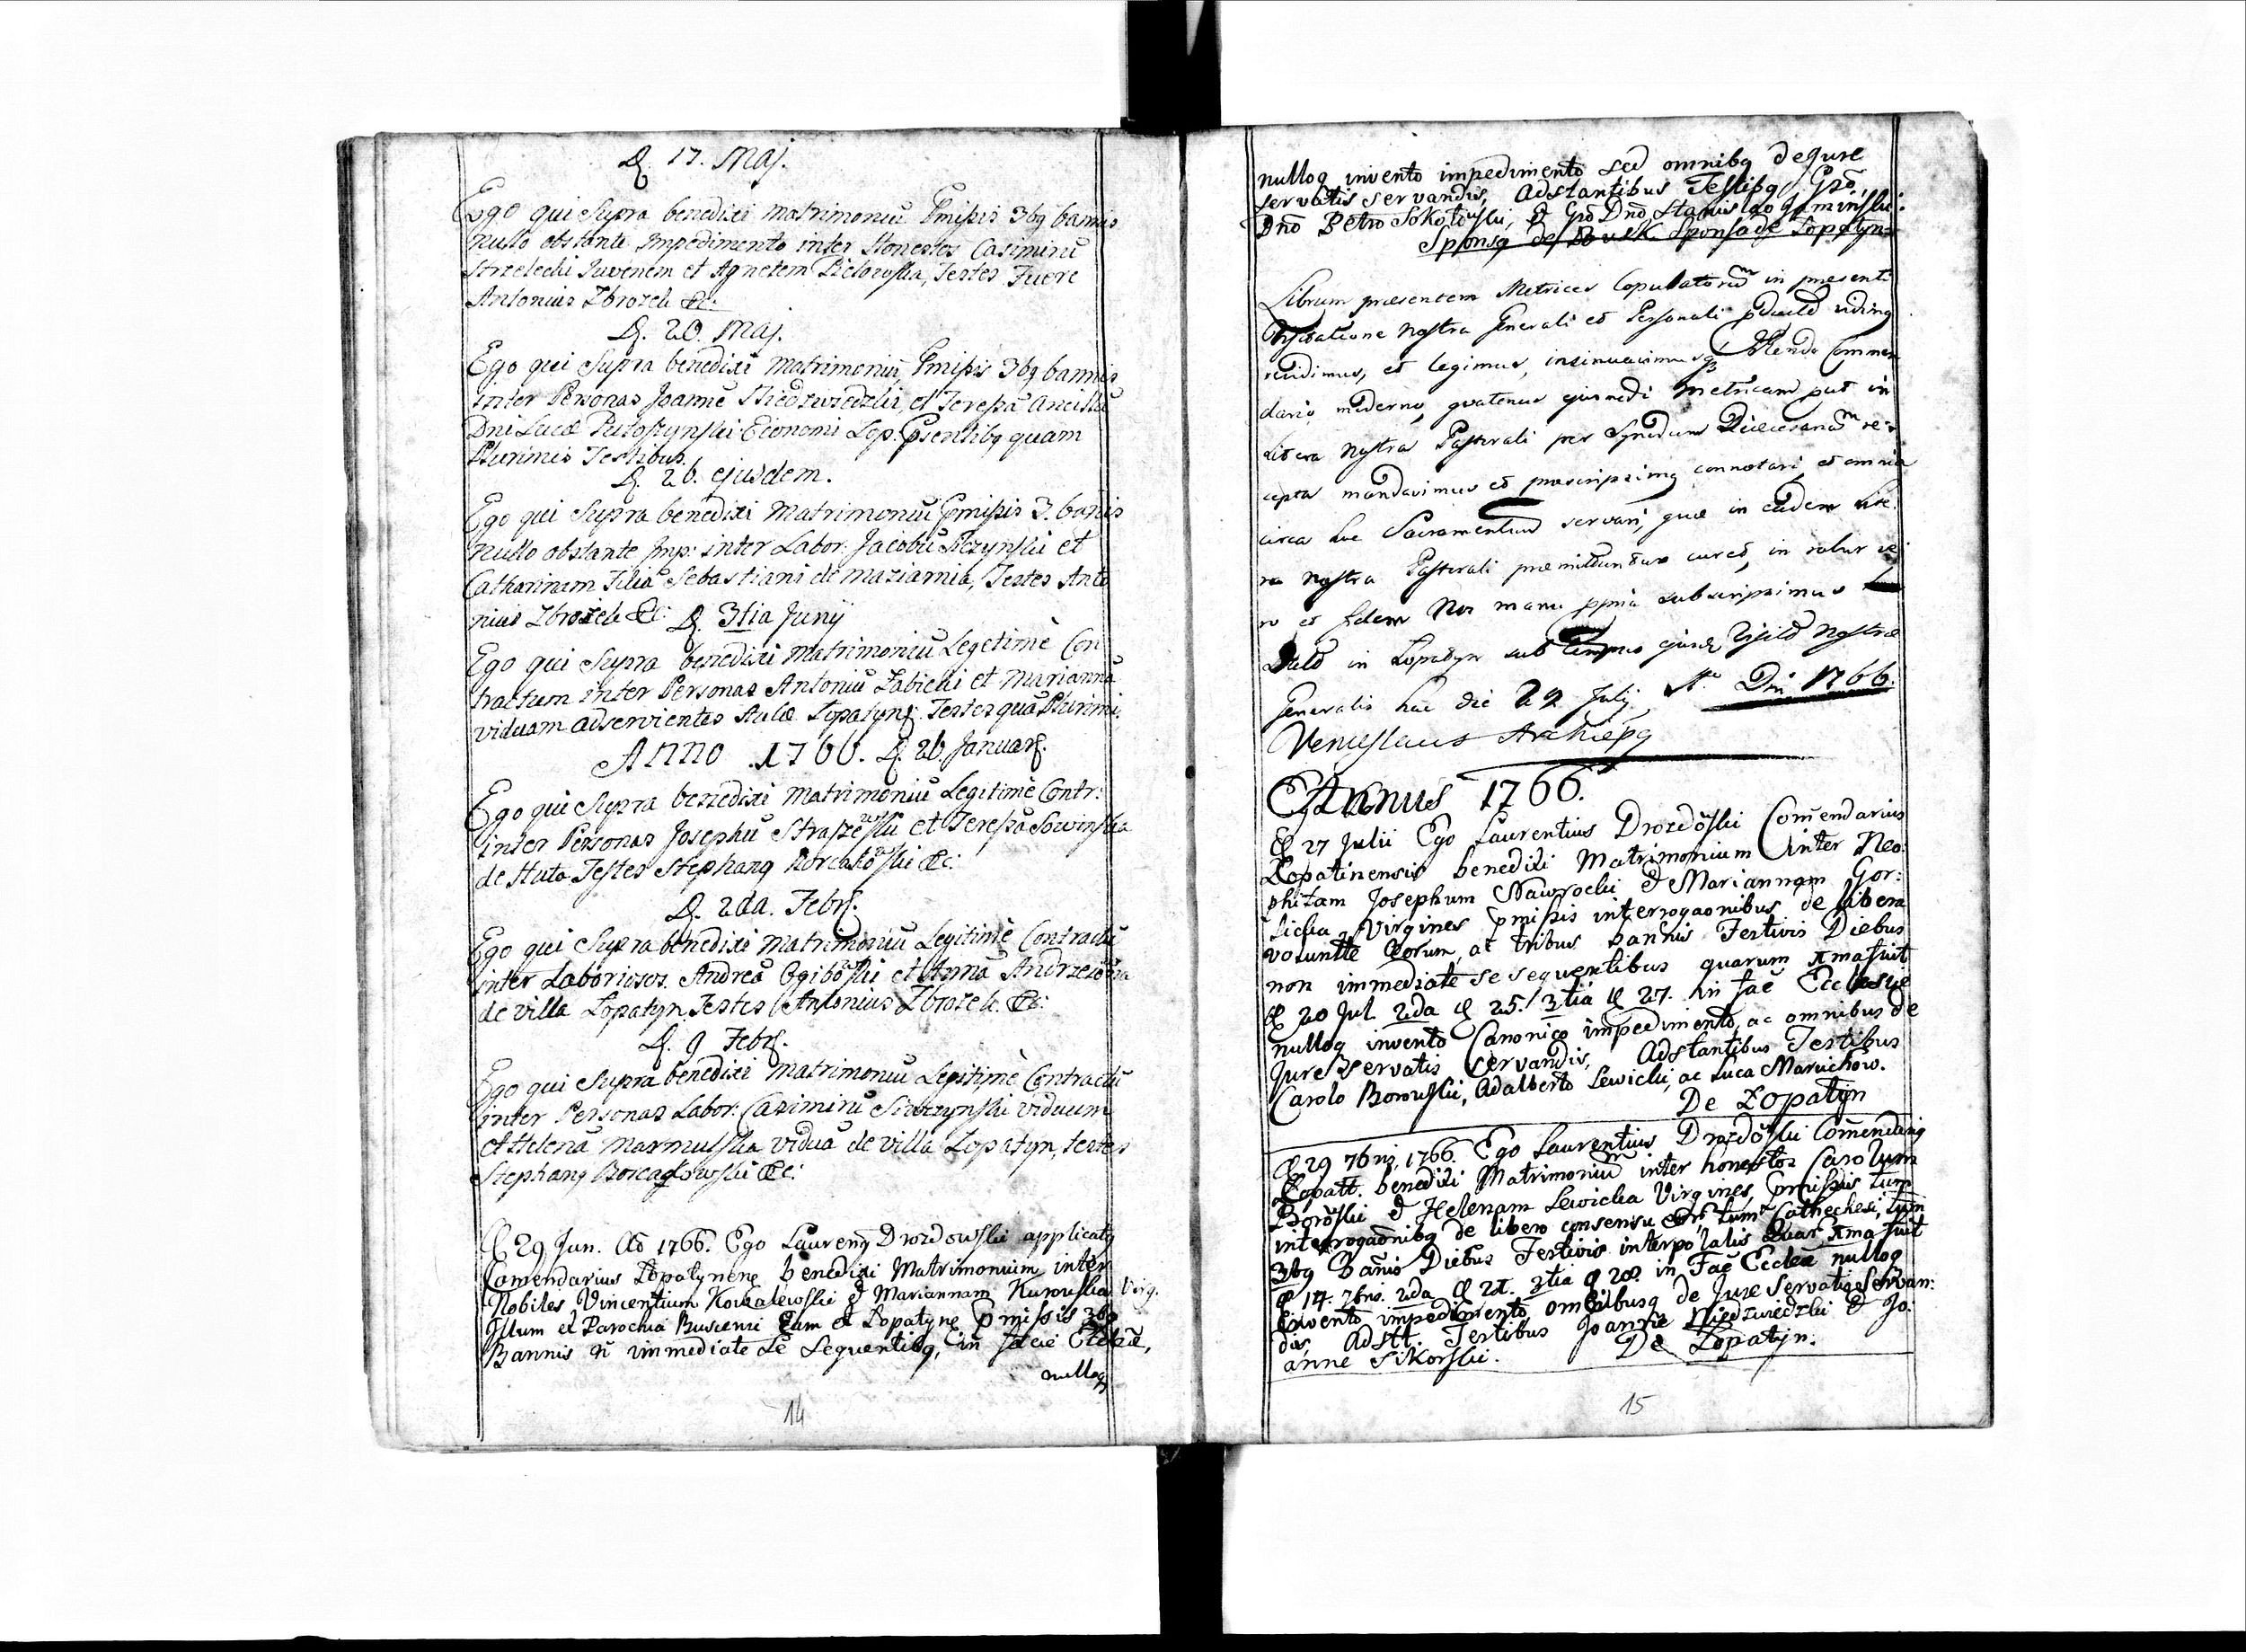 D. 17. Maj.
Ego qui Supra benedixi matrimoniū Pmissis 3bq bannis
nullo obstante Impedimento inter Honestos Casimirū
Strzelecki Juvenem et Agnetem, Testes Fuere
Antonius Zbrozek &c:
D. 20. Maj.
Ego qui Supra benedixi Matrimoniū, Pmissis 3bq bannis
inter Personas Joannē Niedzwiedzki, et Teressā Ancillā
Dni Lucæ Economi Lop: Psentibq quam
Plurimis Testibus.
D. 26. ejusdem.
Ego qui Supra benedixi Matrimoniū Pmissis 3. banis
nullo obstante Imp: inter Labor: Jacobū et
Catharinam Filiā Sebastiani de Maziarnia, Testes Anto
nius Zbrozek &c: D. 3tia Junij
Ego qui Supra benedixi Matrimoniū Legetimè Con
tractum inter Personas Antoniū Zabicki et Mariannā
viduam adservientes Aulæ Lopatyn: Testes quā Plurimi.
Anno 1766. D. 26. Januar.
Ego qui Supra benedixi Matrimoniū Legitimè Contr:
inter Personas Josephū et Teressā Sowinska
de Huta Testes Stephanq &c:
D. 2da. Febr.
Ego qui Supra benedixi Matrimoniū Legitimè Contractū
inter Laboriosos. Andreā et Annā
de villa Lopatyn. Testes Antonius Zbrozek. &c:
D. 9 Febr.
Ego qui Supra benedixi Matrimoniū Legitimè Contractū
inter Personas Labor: Casimirū viduum
et Helenā Marmulska viduā de villa Lopatyn, testes
Stephanq &c:
D 29 Jun. Ad 1766. Ego Laurenq Drozdowski applicatq
Comendarius benedixi Matrimonium inter
Nobiles Vincentium Kowalewski & Mariannam Kurowska Virg.
Illum ex Parochia Eam ex Lopatyne Pmissis 3bq
Bannis n̄ immediate se sequentibq, in facie Eccleæ,
nulloq
14
nulloq invento impedimento sed omnibq de Jure
servatis servandis, Adstantibus Testibq, Gro
Dno Petro Sokołowski, & Gro Dno Stanislao
Sponsq de Sponsa de Lopatyn
Librum præsentem Metrices Copulatorum in præsenti
Visitatione Nostra Generali et Personali
vidimus, et legimus, insinuavimusq Commen
dario moderno, quatenus ejusmodi Metricam put in
Litera Nostra Pastorali per Synodum Diæcesanam re
cepta mandavimus et præscripsimq connotari, et omnia
circa hoc Sacramentum servari, quæ in eadem Lite
ra Nostra Pastorali curet, in robur ve
ro et fidem Nos manu ppria subscripsimus
Datd in Lopatyn sub tempus ejusd Visitd Nostræ
Generalis hac die 29 Julij Ao Dni 1766.
Venceslaus Archiepq
Annus 1766.
D 27 Julii Ego Laurentius Drozdoski Comendarius
Lopatinensis benedixi Matrimonium inter Neo
phitam Josephum Nawrocki & Mariannam Gor:
licka Virgines Pmissis interrogaonibus de libera
voluntte Eorum, ac tribus bannis Festivis Diebus
non immediate se sequentibus quarum Ima fuit
D 20 Jul 2da D 25. 3tia D 27. in faē Ecclesiæ
nulloq invento Canonico impedimento, ac omnibus de
Jure Servatis servandis, Adstantibus Testibus
Carolo Borowski, Adalberto Lewicki, ac Luca Maruchow.
De Lopatyn
D 29 7bris 1766. Ego Laurentius Drozdoski Comendariq
Lopatt. benedixi Matrimonium inter honestos Carolum
Boroski & Helenam Lewicka Virgines, Pmissis tum
interrogaonibq de libero consensu eor: tum Cathechesi, tum
3bq Banis Diebus Festivis interpolatis Quar: Ima fuit
D 14. 7bris. 2da D 21. 3tia D 28. in Faē Ecclæ nulloq
invento impedimento omnibusq de Jure Servatis Servan:
dis, Adstt. Testibus Joanne Niedzwiedzki & Jo:
anne Sikorski. De Lopatyn.
15